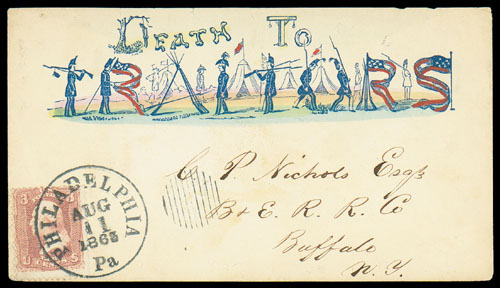 DEATH TO
TRAITORS
C. P. Nichols Esqr
B & E. R. R. Co
Buffalo
N. Y.
3
U S
PHILADELPHIA
AUG
11
1863
Pa